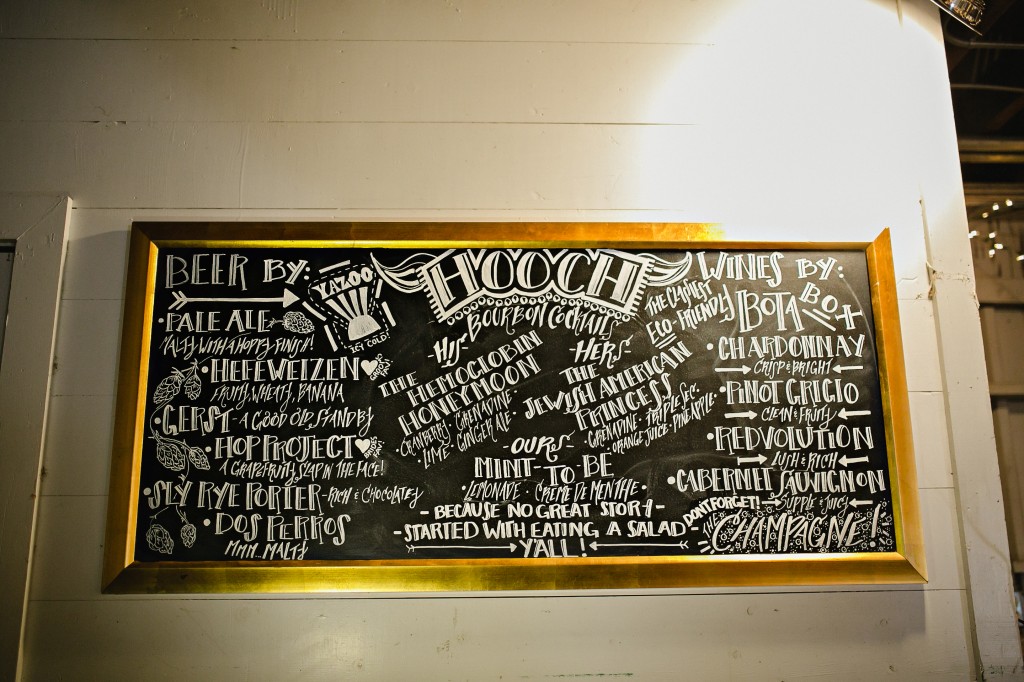 BEER BY:
YAZOO
ICY COLD!
• PALE ALE
MALTY WITH A HOPPY FINISH!
• HEFEWEIZEN
FRUITY, WHEATY, BANANA
• GERST - A GOOD OLD STANDBY
• HOP PROJECT
A GRAPEFRUITY SLAP IN THE FACE!
• SLY RYE PORTER - RICH & CHOCOLATEY
• DOS PERROS
MMM. MALTY
HOOCH
BOURBON COCKTAILS
- HIS -
THE
HEMOGLOBIN
HONEYMOON
CRANBERRY • GRENADINE •
• LIME • GINGER ALE •
- HERS -
THE
JEWISH AMERICAN
PRINCESS
GRENADINE • TRIPLE SEC •
ORANGE JUICE • PINEAPPLE
- OURS -
MINT-TO-BE
• LEMONADE • CREME DE MENTHE •
- BECAUSE NO GREAT STORY -
- STARTED WITH EATING A SALAD
Y'ALL!
WINES BY:
THE CLASSIEST
ECO-FRIENDLY
BOTA BOX
• CHARDONNAY
CRISP & BRIGHT
• PINOT GRIGIO
CLEAN & FRUITY
• REDVOLUTION
LUSH & RICH
• CABERNET SAUVIGNON
SUPPLE & JUICY
DON'T FORGET!
THE
CHAMPAGNE!